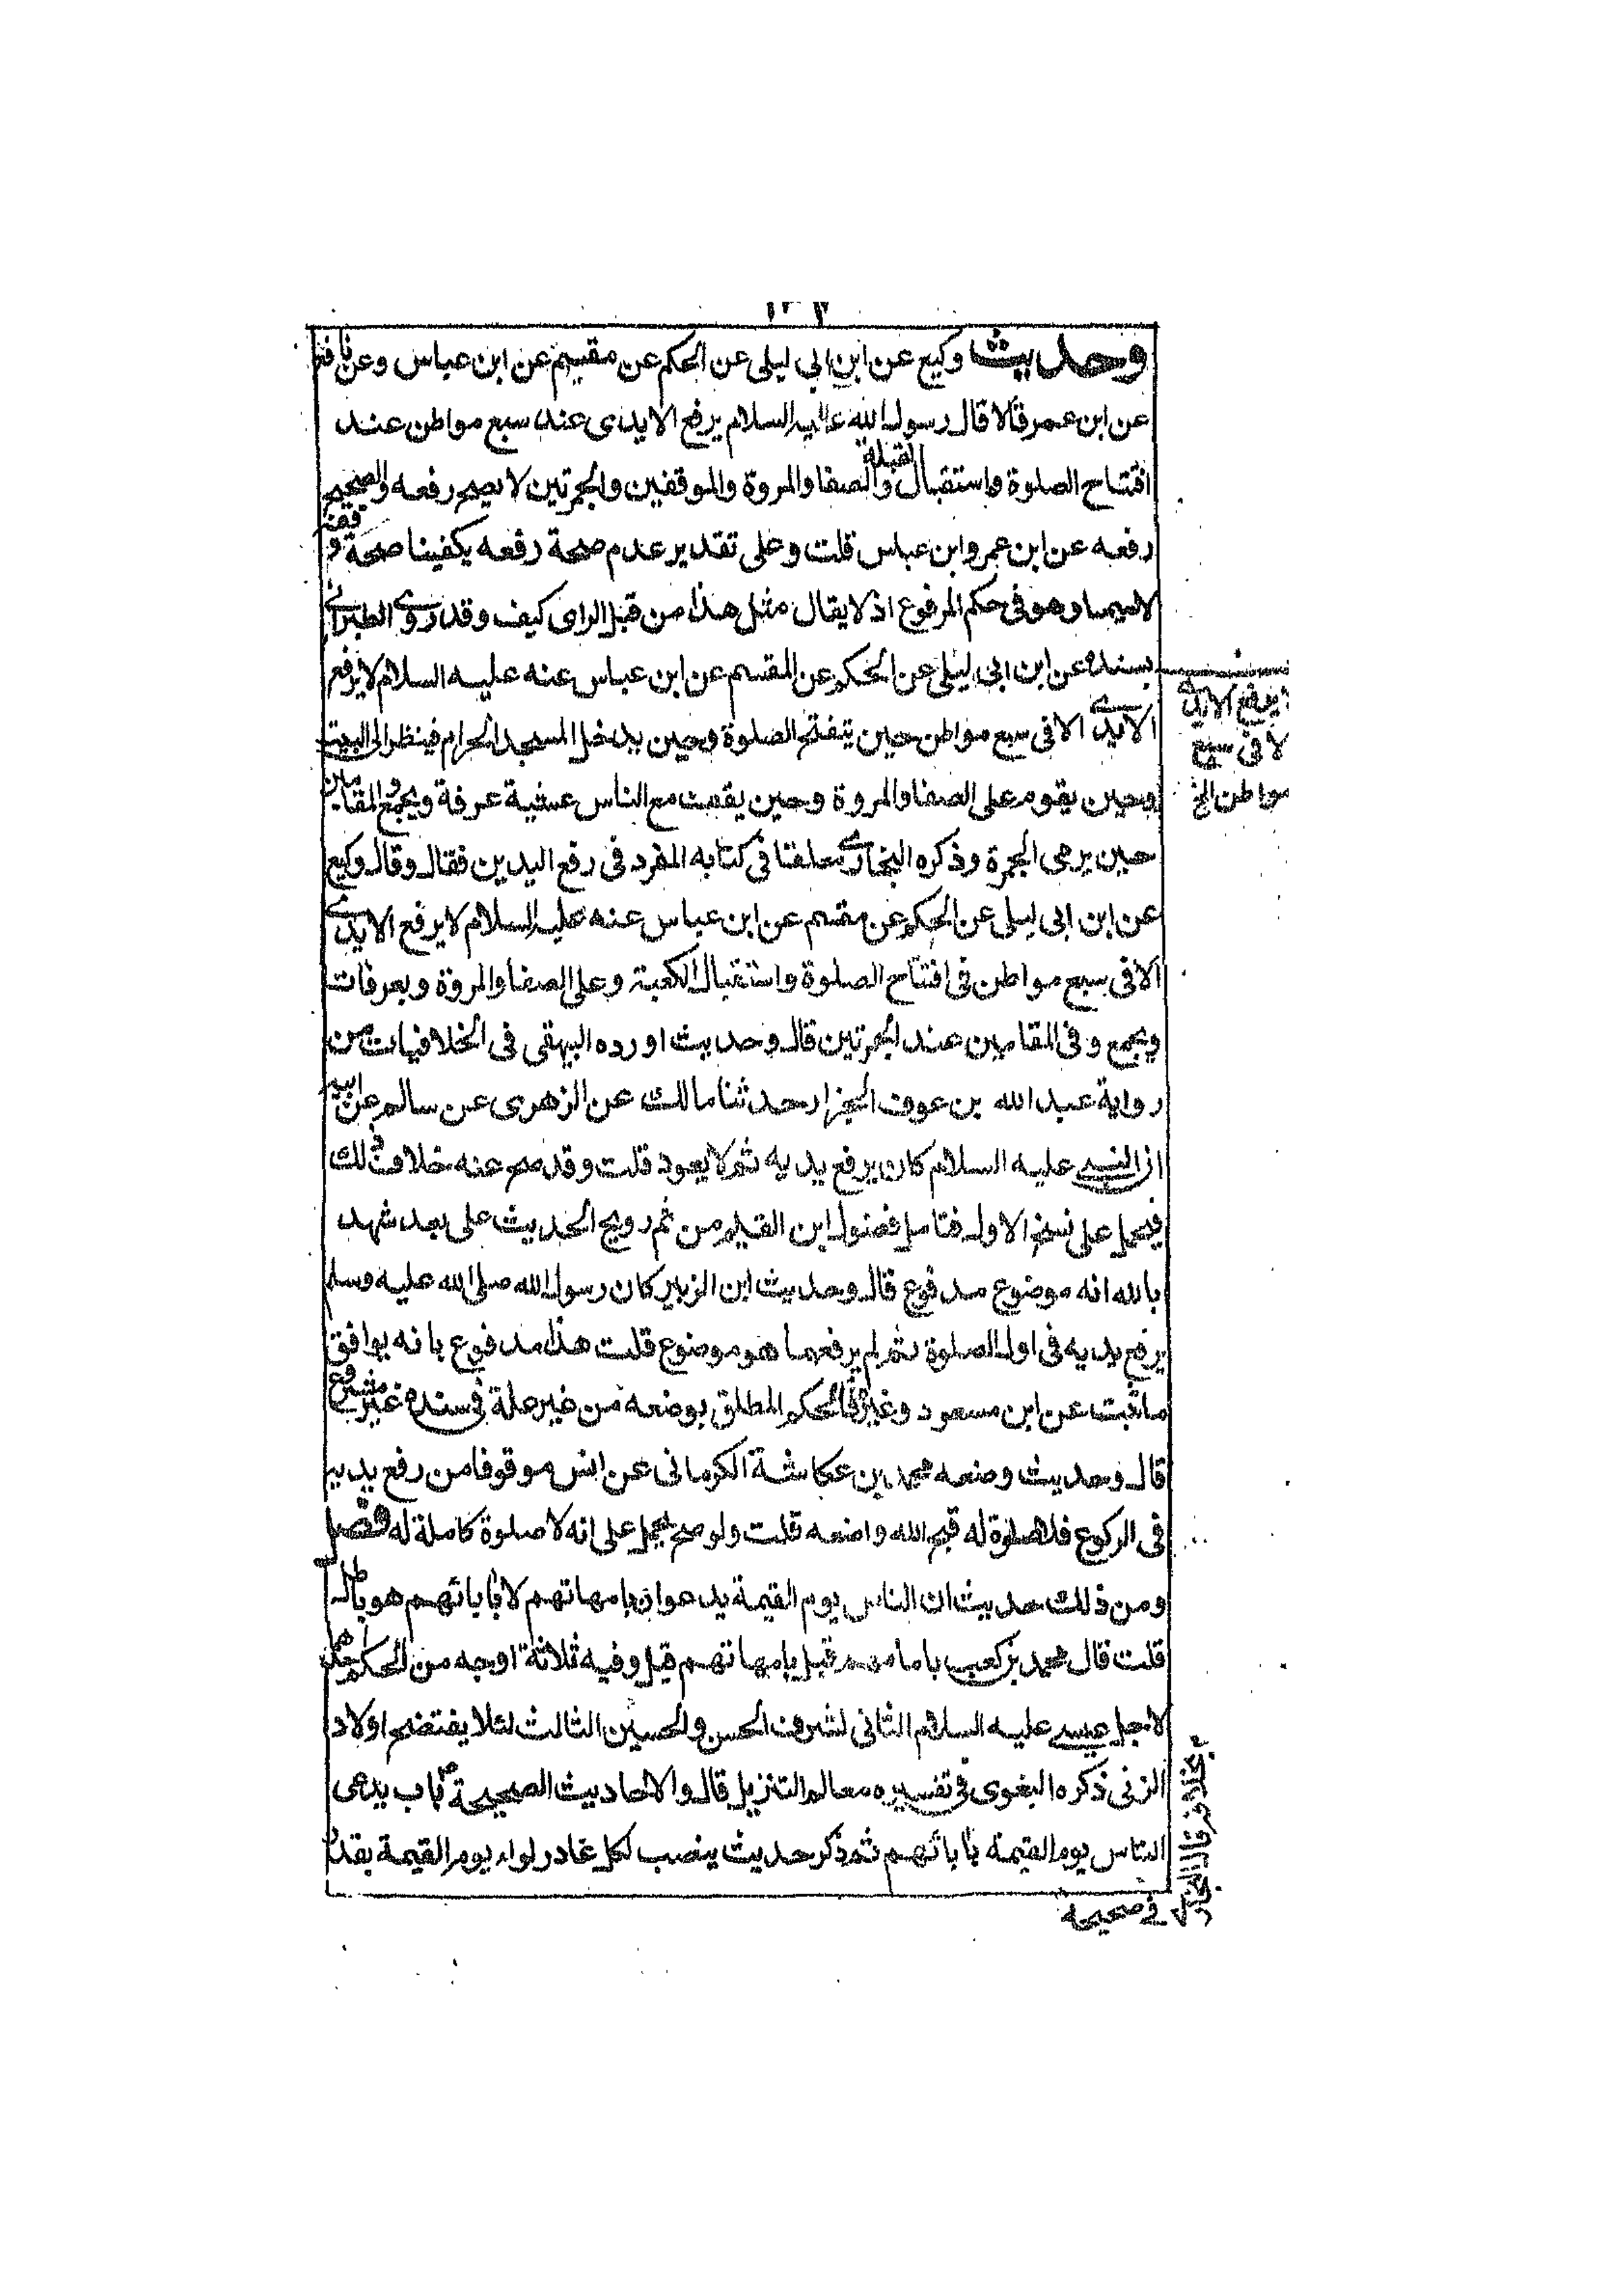 وحديث وكيع عن ابن ابى ليلى عن الحكم عن مقسم عن ابن عباس وعن نافع
عن ابن عمر قالا قال رسول الله عليه السلام يرفع الايدى عند سبع مواطن عند
افتتاح الصلوة واستقبال القبلة والصفا والمروة والموقفين والجمرتين لا يصح رفعه والصحيح
رفعه عن ابن عمر وابن عباس قلت وعلى تقدير عدم صحة رفعه يكفينا صحة وقفه
لاسيما وهو فى حكم المرفوع اذ لا يقال مثل هذا من قبل الراى كيف وقد روى الطبرانى
بسنده عن ابن ابى ليلى عن الحكم عن المقسم عن ابن عباس عنه عليه السلام لا يرفع
الايدى الا فى سبع مواطن حين يتفتح الصلوة وحين يدخل المسجد الحرام فينظر الى البيت
وحين يقوم على الصفا والمروة وحين يقف مع الناس عشية عرفة ويجمع والمقامين
حين يرمى الجمرة وذكره البخارى معلقا فى كتابه المفرد فى رفع اليدين فقال وقال وكيع
عن ابن ابى ليلى عن الحكم عن مقسم عن ابن عباس عنه عليه السلام لا يرفع الايدى
الا فى سبع مواطن فى افتتاح الصلوة واستقبال الكعبة وعلى الصفا والمروة وبعرفات
ويجمع وفى المقامين عند الجمرتين قال وحديث اورده البيهقى فى الخلافيات من
رواية عبد الله بن عوف الخزار حدثنا مالك عن الزهرى عن سالم عن ابيه
ان النبى عليه السلام كان يرفع يديه ثم لا يعود قلت وقد صح عنه خلاف ذلك
فيحمل على نسخ الاول فتامل فقول ابن القيم من شم روايح الحديث على بعد شهد
بالله انه موضوع مدفوع قال وحديث ابن الزبير كان رسول الله صلى الله عليه وسلم
يرفع يديه فى اول الصلوة ثم لم يرفعهما هو موضوع قلت هذا مدفوع بانه يوافق
ما ثبت عن ابن مسعود وغيره فالحكم المطلق بوضعه من غير علة فى سنده غير مشروع
قال وحديث وضعه محمد بن عكاشة الكرمانى عن انس موقوفا من رفع يديه
فى الركوع فلا صلوة له قبح الله واضعه قلت ولو صح يحمل على انه لا صلوة كاملة له فصل
ومن ذلك حديث ان الناس يوم القيمة يدعون بامهاتهم لا بابائهم هو باطل
قلت قال محمد بن كعب بامامهم قيل بامهاتهم قيل وفيه ثلاثة اوجه من الحكم
لاجل عيسى عليه السلام الثانى لشرف الحسن والحسين الثالث لئلا يفتضح اولاد
الزنى ذكره البغوى فى تفسيره معالم التنزيل قال والاحاديث الصحيحة باب يدعى
الناس يوم القيمة بابائهم ثم ذكر حديث ينصب لكل غادر لواء يوم القيمة بقدر
لا يرفع الايدى
الا فى سبع
مواطن الخ
بخلافه قال البخارى
فى صحيحه